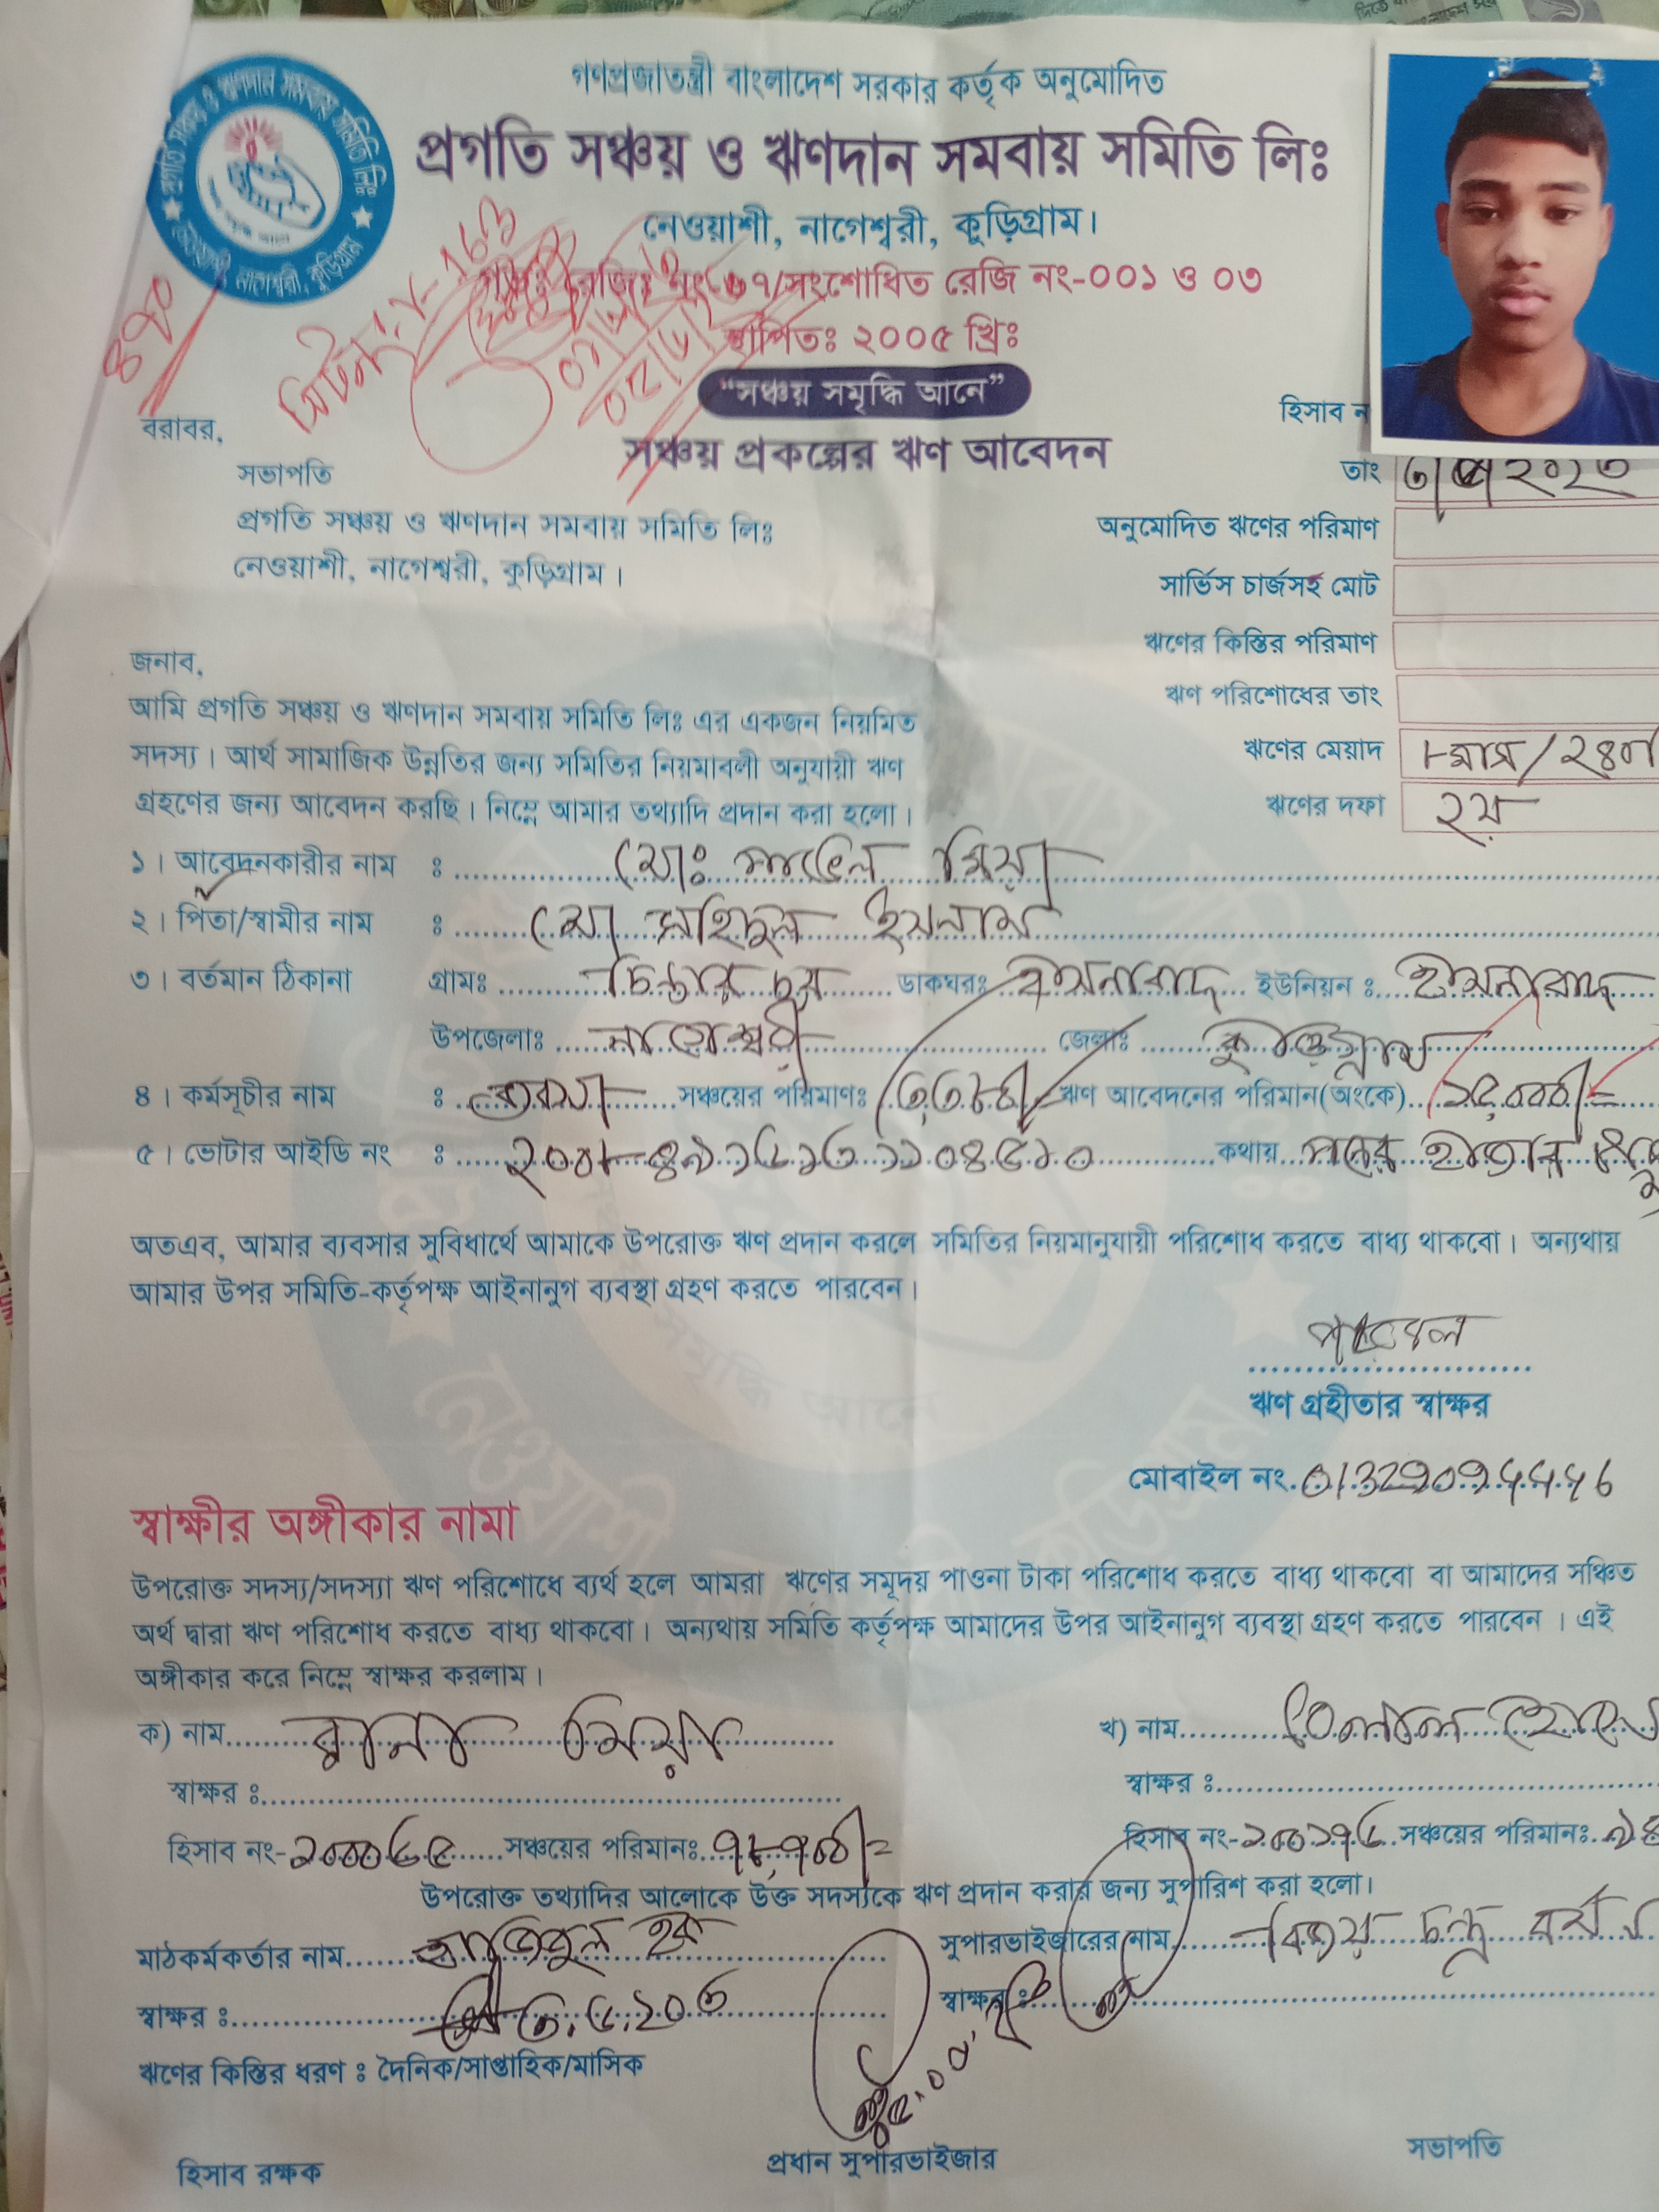 গণপ্রজাতন্ত্রী বাংলাদেশ সরকার কর্তৃক অনুমোদিত
প্রগতি সঞ্চয় ও ঋণদান সমবায় সমিতি লিঃ
নেওয়াশী, নাগেশ্বরী, কুড়িগ্রাম।
রেজিঃ নং-৩৭/সংশোধিত রেজি নং-০০১ ও ০৩
স্থাপিতঃ ২০০৫ খ্রিঃ
“সঞ্চয় সমৃদ্ধি আনে”
সঞ্চয় প্রকল্পের ঋণ আবেদন
হিসাব ন
তাং
বরাবর,
সভাপতি
প্রগতি সঞ্চয় ও ঋণদান সমবায় সমিতি লিঃ
নেওয়াশী, নাগেশ্বরী, কুড়িগ্রাম।
অনুমোদিত ঋণের পরিমাণ
সার্ভিস চার্জসহ মোট
ঋণের কিস্তির পরিমাণ
ঋণ পরিশোধের তাং
ঋণের মেয়াদ ৮মাস/২৪০
ঋণের দফা ২য়
জনাব,
আমি প্রগতি সঞ্চয় ও ঋণদান সমবায় সমিতি লিঃ এর একজন নিয়মিত
সদস্য। আর্থ সামাজিক উন্নতির জন্য সমিতির নিয়মাবলী অনুযায়ী ঋণ
গ্রহণের জন্য আবেদন করছি। নিম্নে আমার তথ্যাদি প্রদান করা হলো।
১। আবেদনকারীর নাম ঃ মোঃ পাভেল মিয়া
২। পিতা/স্বামীর নাম ঃ মোঃ ইসলাম
৩। বর্তমান ঠিকানা গ্রামঃ ডাকঘরঃ ইউনিয়ন ঃ
উপজেলাঃ নাগেশ্বরী জেলাঃ কুড়িগ্রাম
৪। কর্মসূচীর নাম ঃ ব্যবসা সঞ্চয়ের পরিমাণঃ ঋণ আবেদনের পরিমান(অংকে) ১৫,০০০/=
৫। ভোটার আইডি নং ঃ কথায় পনের হাজার
অতএব, আমার ব্যবসার সুবিধার্থে আমাকে উপরোক্ত ঋণ প্রদান করলে সমিতির নিয়মানুযায়ী পরিশোধ করতে বাধ্য থাকবো। অন্যথায়
আমার উপর সমিতি-কর্তৃপক্ষ আইনানুগ ব্যবস্থা গ্রহণ করতে পারবেন।
পাভেল
ঋণ গ্রহীতার স্বাক্ষর
মোবাইল নং.
স্বাক্ষীর অঙ্গীকার নামা
উপরোক্ত সদস্য/সদস্যা ঋণ পরিশোধে ব্যর্থ হলে আমরা ঋণের সমূদয় পাওনা টাকা পরিশোধ করতে বাধ্য থাকবো বা আমাদের সঞ্চিত
অর্থ দ্বারা ঋণ পরিশোধ করতে বাধ্য থাকবো। অন্যথায় সমিতি কর্তৃপক্ষ আমাদের উপর আইনানুগ ব্যবস্থা গ্রহণ করতে পারবেন। এই
অঙ্গীকার করে নিম্নে স্বাক্ষর করলাম।
ক) নাম রানা মিয়া খ) নাম
স্বাক্ষর ঃ স্বাক্ষর ঃ
হিসাব নং- সঞ্চয়ের পরিমানঃ ৭৮,৭০০/= হিসাব নং- সঞ্চয়ের পরিমানঃ
উপরোক্ত তথ্যাদির আলোকে উক্ত সদস্যকে ঋণ প্রদান করার জন্য সুপারিশ করা হলো।
মাঠকর্মকর্তার নাম হক সুপারভাইজারের নাম চন্দ্র
স্বাক্ষর ঃ স্বাক্ষর ঃ
ঋণের কিস্তির ধরণ ঃ দৈনিক/সাপ্তাহিক/মাসিক
হিসাব রক্ষক প্রধান সুপারভাইজার সভাপতি